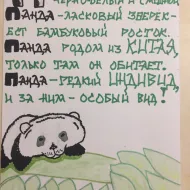 ЧЕРНО-БЕЛЫЙ И СМЕШНОЙ
ПАНДА-ЛАСКОВЫЙ ЗВЕРЕК-
ЕСТ БАМБУКОВЫЙ РОСТОК.
ПАНДА РОДОМ ИЗ КИТАЯ,
ТОЛЬКО ТАМ ОН ОБИТАЕТ.
ПАНДА-РЕДКИЙ ИНДИВИД,
И ЗА НИМ- ОСОБЫЙ ВИД!